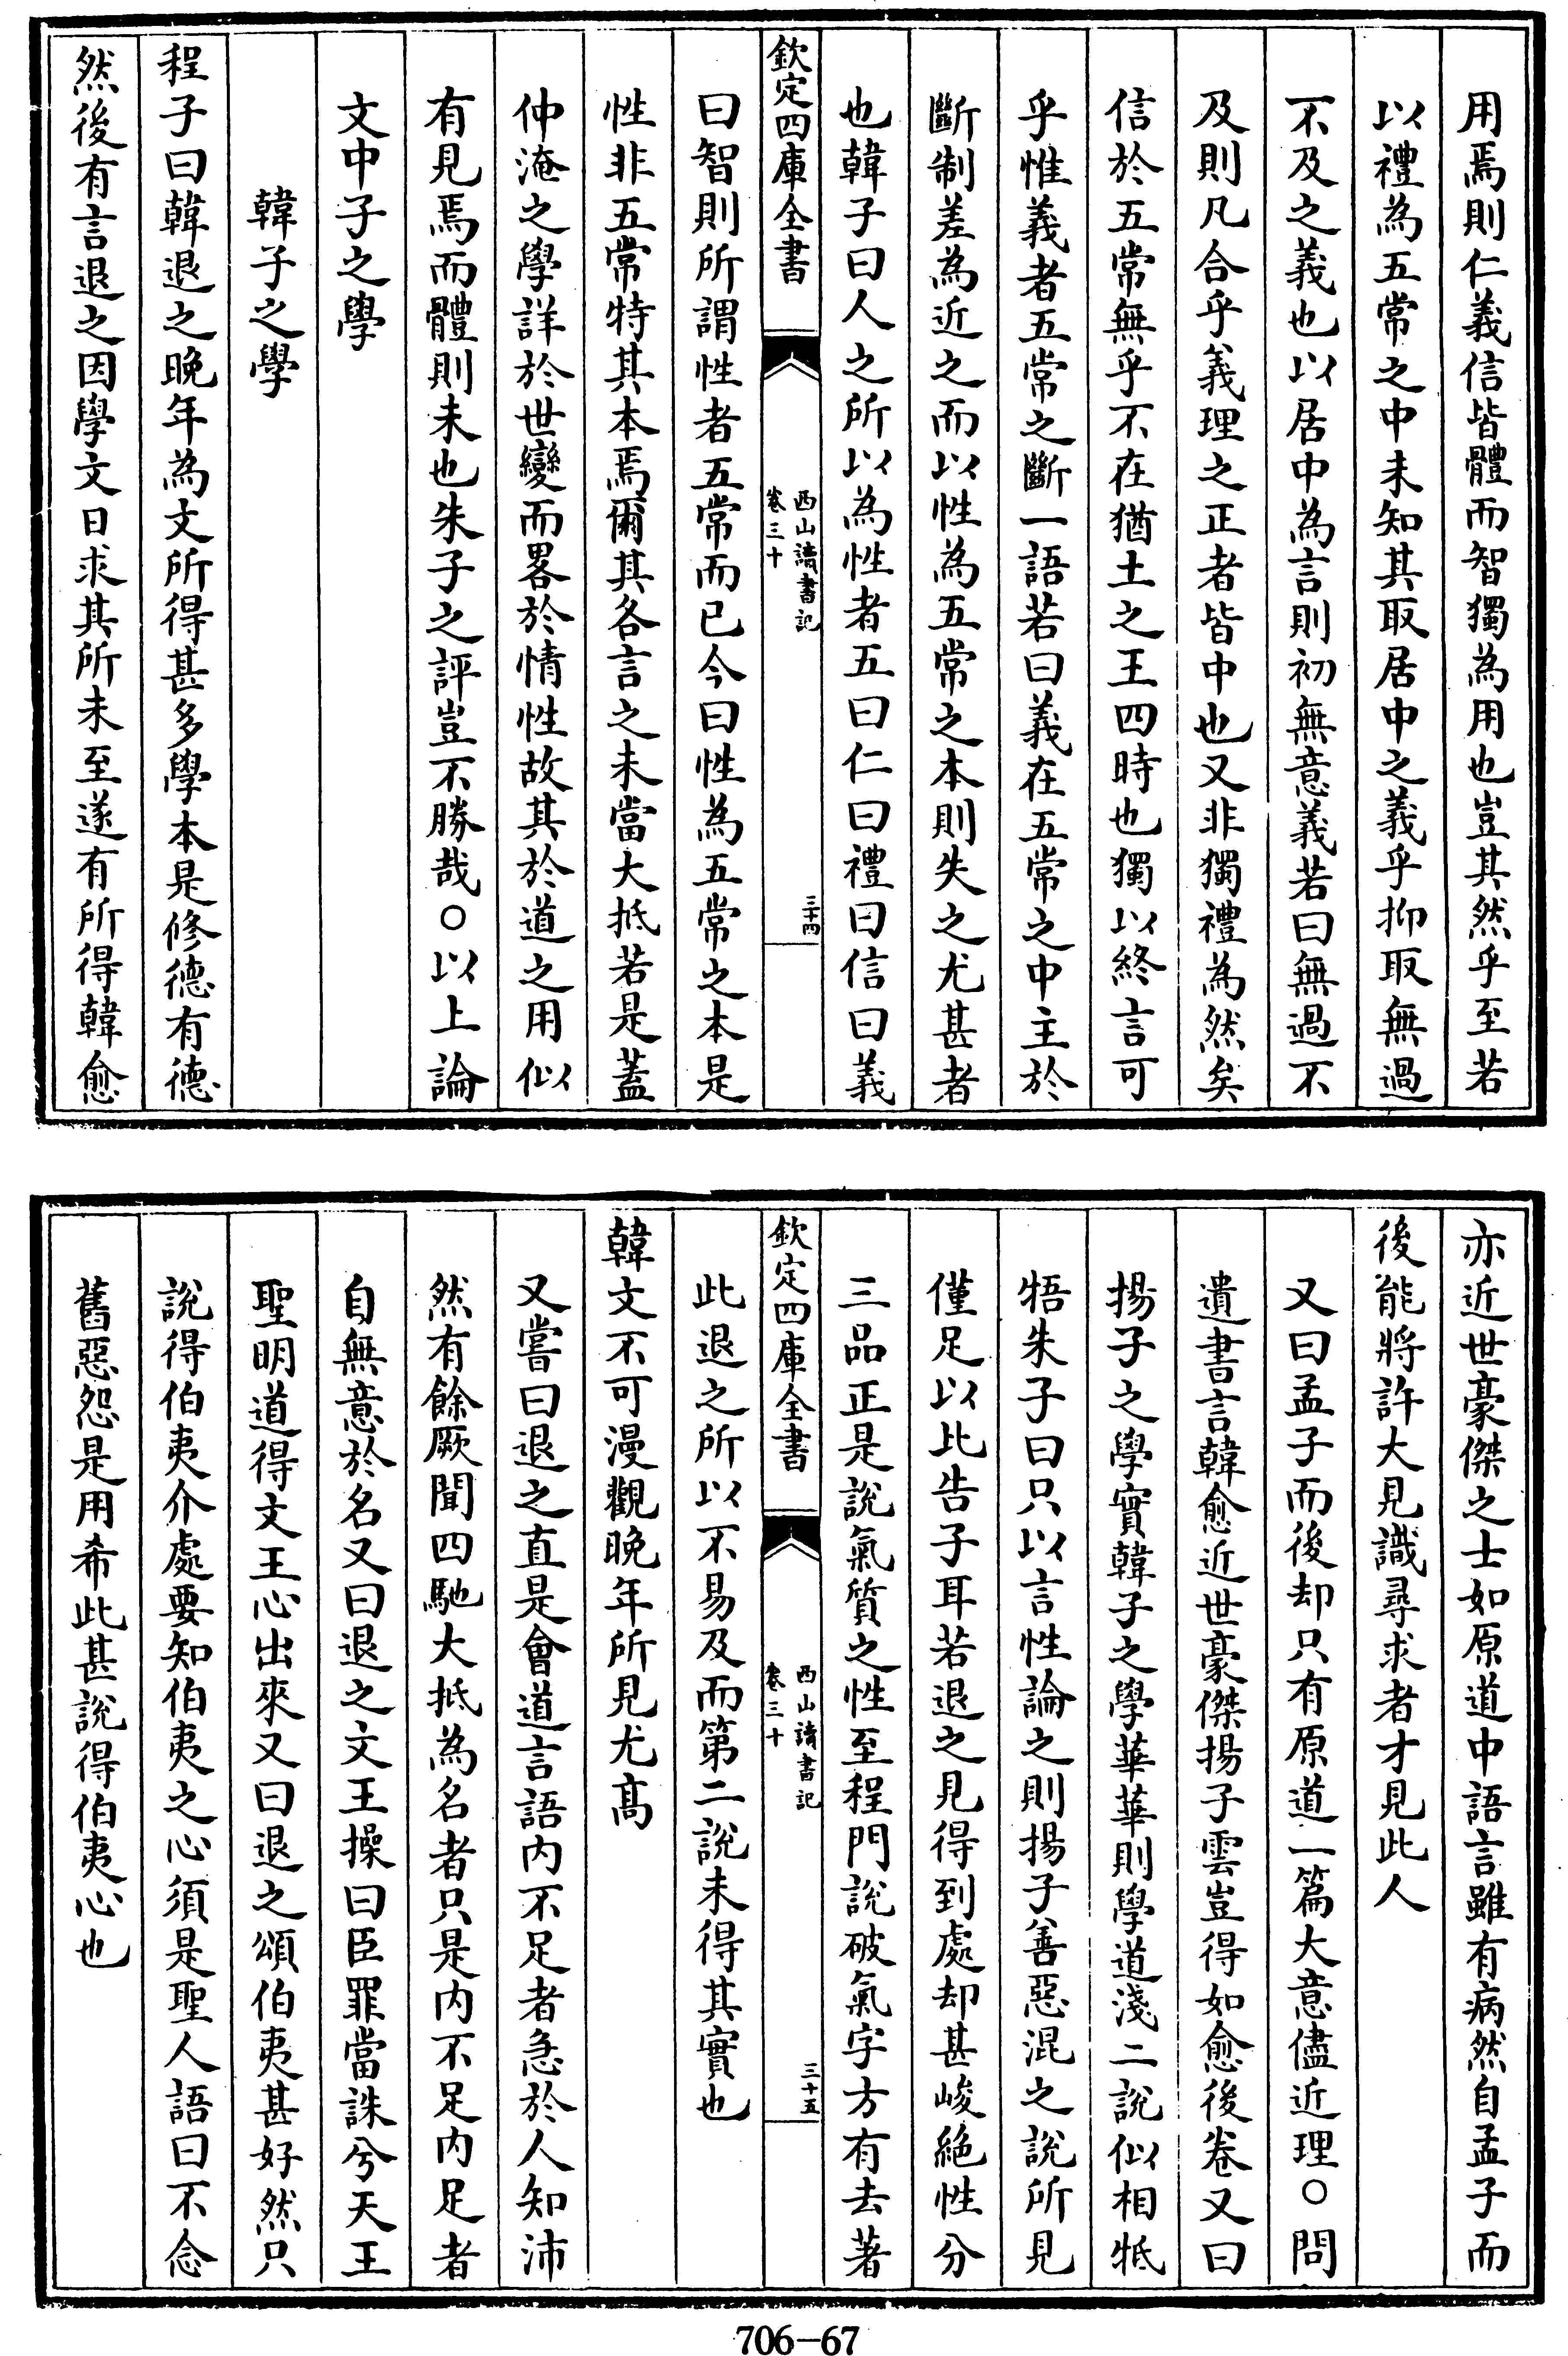 用焉則仁義信皆體而智獨為用也豈其然乎至若
以禮為五常之中未知其取居中之義乎抑取無過
不及之義也以居中為言則初無意義若曰無過不
及則凡合乎義理之正者皆中也又非獨禮為然矣
信於五常無乎不在猶土之王四時也獨以終言可
乎惟義者五常之斷一語若曰義在五常之中主於
斷制差為近之而以性為五常之本則失之尤甚者
也韓子曰人之所以為性者五曰仁曰禮曰信曰義
欽定四庫全書
西山讀書記
卷三十
三十四
曰智則所謂性者五常而已今曰性為五常之本是
性非五常特其本焉爾其各言之未當大抵若是蓋
仲淹之學詳於世變而畧於情性故其於道之用似
有見焉而體則未也朱子之評豈不勝哉○以上論
文中子之學
韓子之學
程子曰韓退之晚年為文所得甚多學本是修德有德
然後有言退之因學文日求其所未至遂有所得韓愈
亦近世豪傑之士如原道中語言雖有病然自孟子而
後能將許大見識尋求者才見此人
又曰孟子而後却只有原道一篇大意儘近理○問
遺書言韓愈近世豪傑揚子雲豈得如愈後卷又曰
揚子之學實韓子之學華華則學道淺二說似相牴
牾朱子曰只以言性論之則揚子善惡混之說所見
僅足以比告子耳若退之見得到處却甚峻絕性分
三品正是說氣質之性至程門說破氣字方有去著
欽定四庫全書
西山讀書記
卷三十
三十五
此退之所以不易及而第二說未得其實也
韓文不可漫觀晚年所見尤高
又嘗曰退之直是會道言語內不足者急於人知沛
然有餘厥聞四馳大抵為名者只是內不足內足者
自無意於名又曰退之文王操曰臣罪當誅兮天王
聖明道得文王心出來又曰退之頌伯夷甚好然只
說得伯夷介處要知伯夷之心須是聖人語曰不念
舊惡怨是用希此甚說得伯夷心也
706-67